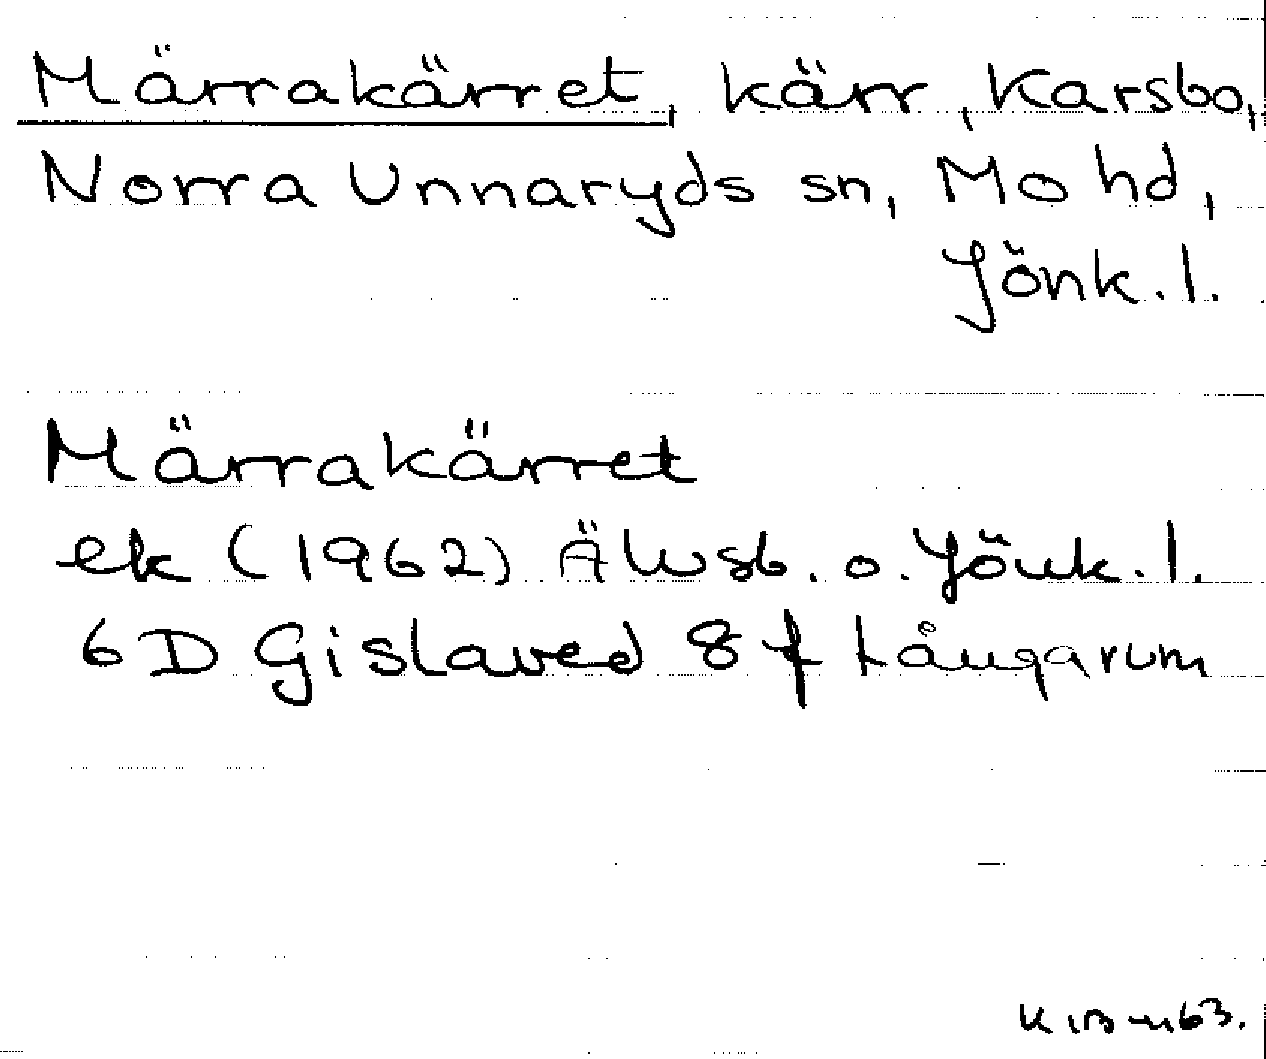 Märrakärret, kärr, Karsbo,
Norra Unnaryds sn, Mo hd,
Jönk. l.
Märrakärret
ek (1962) Älvsb. o. Jönk. l.
6D Gislaved 8 f Långarum